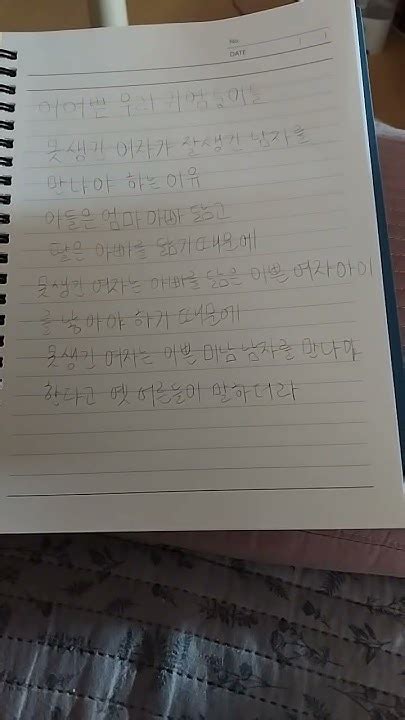 No.
DATE
이어쁜 우리 귀염둥이들
못생긴 여자가 잘생긴 남자를
만나야 하는 이유
아들은 엄마 아빠 닮고
딸은 아빠를 닮기 때문에
못생긴 여자는 아빠를 닮은 이쁜 여자아이
를 낳아야 하기 때문에
못생긴 여자는 이쁜 미남 남자를 만나야
한다고 옛 어른들이 말하더라